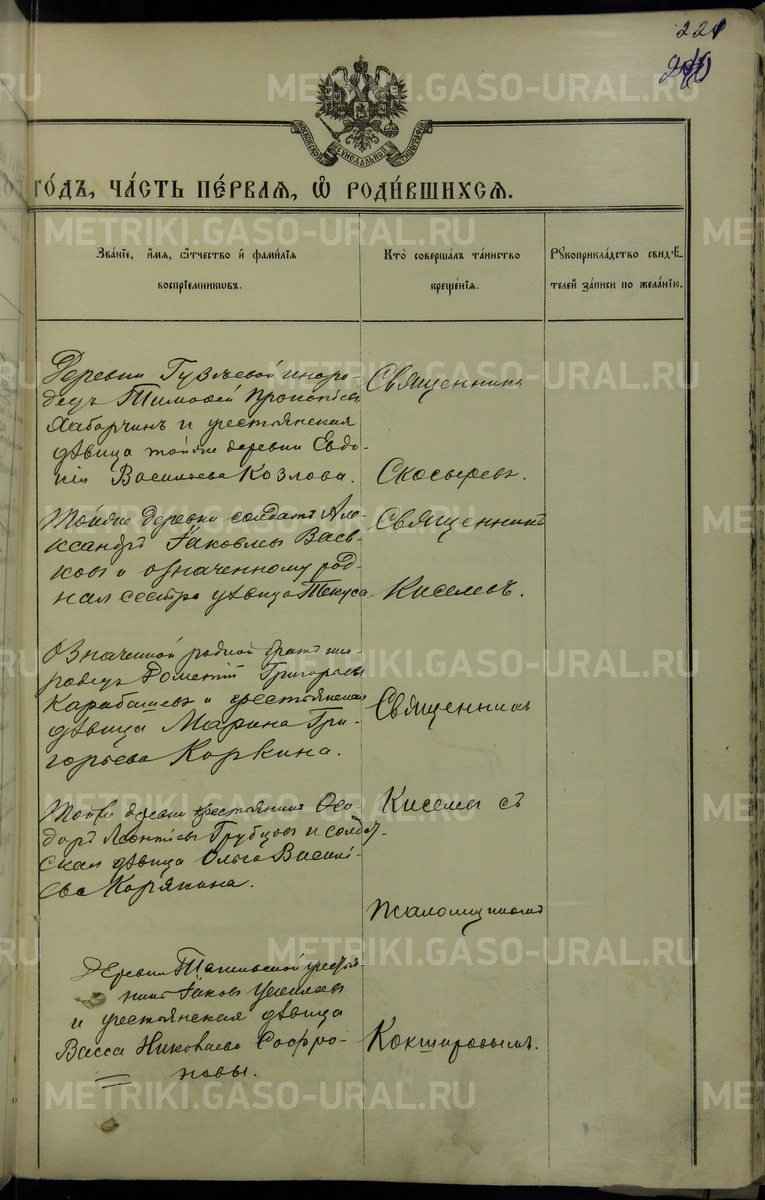 221
METRIKI.GASO-URAL.RU
МОСКОВСКОЙ СѴНОДАЛЬНОЙ ТИПОГРАФІИ
го́дъ, ча́сть пе́рваѧ, ѡ҆ роди́вшихсѧ.
Зва́нїе, и҆́мѧ, ѻ҆́тчество и҆ фами́лїѧ
воспрїе́мникѡвъ.
Кто̀ соверша́лъ та́инство
креще́нїѧ.
Рꙋкоприкла́дство свидѣ́-
телей за́писи по жела́нїю.
Деревни Гузѣевой иноро-
децъ Тимофей Прокопьевъ
Хаборчинъ и крестьянская
дѣвица тойже деревни Евдо-
кія Васильева Козлова.
Священникъ
Скосыревъ.
Тойже деревни солдатъ Але-
ксандръ Іаковлевъ Вась-
ковъ и означенному род-
ная сестра дѣвица Текуса.
Священникъ
Киселевъ.
Означенной родной братъ ино-
родецъ Дометій Григорьевъ
Карабашевъ и крестьянская
дѣвица Марина Гри-
горьева Коркина.
Священникъ
Тойже деревни крестьянинъ Ѳео-
доръ Леонтьевъ Грубцовъ и солдат-
ская дѣвица Ольга Василь-
ева Корякина.
Киселевъ съ
псаломщикомъ
Деревни крестья-
нинъ Іаковъ
и крестьянская дѣвица
Васса Николаева Софро-
новы.
Кокшаровымъ.